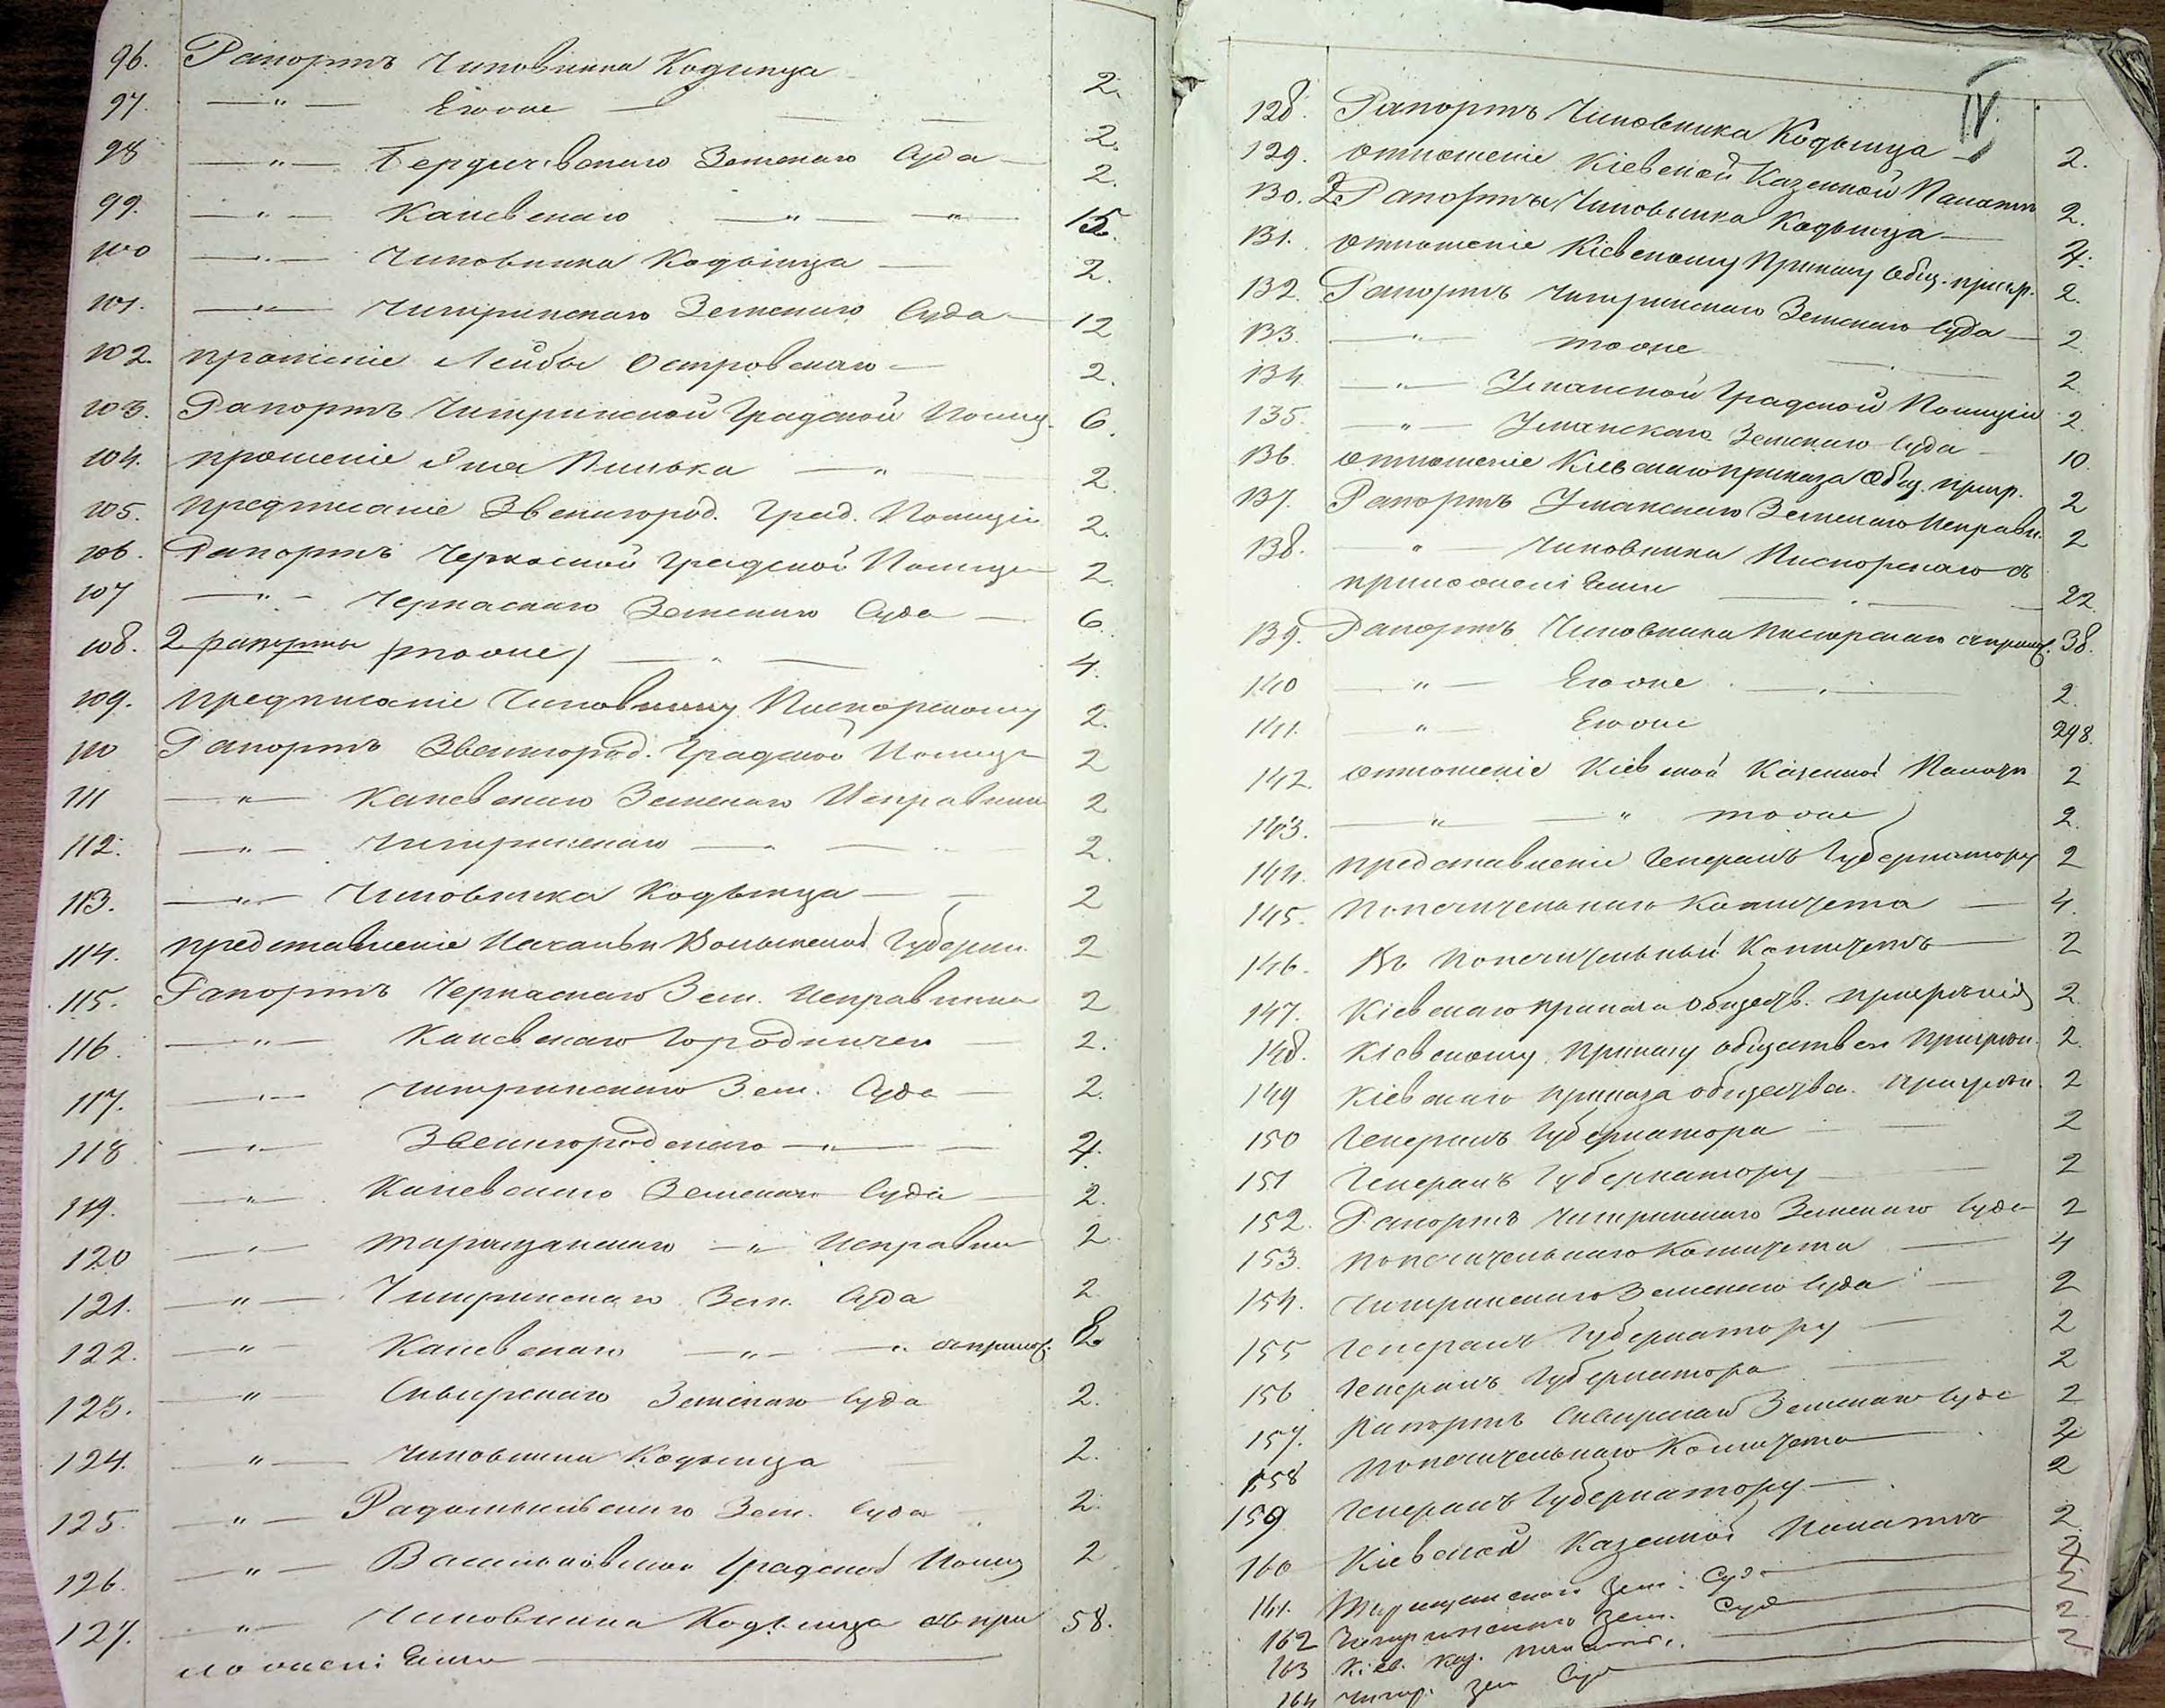 96. Рапортъ Чиновника Кодынца 2.
97. —"— Егоже — 2.
98 —"— Бердичевскаго Земскаго Суда — 2.
99. —"— Каневскаго —"— —"—
100 —"— Чиновника Кодынца — 2.
101. —"— Чигиринскаго Земскаго Суда — 12
102. прошеніе Лейбы Островскаго — 2.
103. Рапортъ Чигиринской Градской Полиц. 6.
104. прошеніе —"— 2.
105. предписаніе Звенигород. Град. Полиціи 2.
106. Рапортъ Черкаской Градской Полиціи 2.
107 —"— Черкаскаго Земскаго Суда — 6.
108. 2 рапорты /тоже/ — 4.
109. предписаніе Чиновнику Пискорскому 2.
110 Рапортъ Звенигород. Градской Полиціи 2
111 —"— Каневскаго Земскаго Исправника 2
112. —"— Чигиринскаго — 2.
113. —"— Чиновника Кодынца — 2
114. представленіе Начальн Волынской Губерніи. 2
115. Рапортъ Черкаскаго Зем. Исправника 2
116. —"— Каневскаго Городничаго 2.
117. —"— Чигиринскаго Зем. Суда — 2.
118 —"— Звенигородскаго —"— 4.
119. —"— Каневскаго Земскаго Суда — 2.
120 —"— Таращанскаго —"— Исправни 2
121. —"— Чигиринскаго Зем. Суда 2
122. —"— Каневскаго —"— —"— съ прилож. 8.
123. —"— Сквирскаго Земскаго Суда 2.
124. —"— Чиновника Кодынца 2.
125. —"— Радомысльскаго Зем. Суда 2.
126. —"— Васильковской Градской Полиц 2
127. —"— Чиновника Кодынца съ при 58.
ложеніями —
IV.
128. Рапортъ Чиновника Кодынца — 2.
129. отношеніе Кіевской Казенной Палаты 2.
130. 2 Рапорты Чиновника Кодынца — 4.
131. отношеніе Кіевскому Приказу Общ. призр. 2.
132. Рапортъ Чигиринскаго Земскаго Суда — 2
133. —"— тоже 2
134. —"— Уманской Градской Полиціи 2
135. —"— Уманскаго Земскаго Суда — 10.
136. отношеніе Кіевскаго приказа Общ. призр. 2
137. Рапортъ Уманскаго Земскаго Исправн. 2
138. —"— Чиновника Пискорскаго съ
приложеніями — 22.
139. Рапортъ Чиновника Пискорскаго съ прилож. 38.
140 —"— Егоже — 2.
141. —"— Егоже 298.
142. отношеніе Кіевской Казенной Палаты 2
143. —"— —"— тоже 2.
144. представленіе Генералъ Губернатору 2
145. Попечительнаго Комитета — 4.
146. Въ Попечительный Комитетъ — 2
147. Кіевскаго приказа Обществ. призрѣнія 2
148. Кіевскому Приказу обществен призрѣн. 2
149 Кіевскаго приказа обществен. призрѣн. 2
150 Генералъ Губернатора — 2
151 Генералъ Губернатору — 2
152. Рапортъ Чигиринскаго Земскаго Суда 2
153. Попечительнаго Комитета — 4
154. Чигиринскаго Земскаго Суда — 2
155 Генералъ Губернатору — 2
156 Генералъ Губернатора — 2
157. Рапортъ Сквирскаго Земскаго Суда 2
158 Попечительнаго Комитета — 4
159. Генералъ Губернатору — 2
160 Кіевской Казенной Палаты 2
161. Таращанскаго Зем. Суда — 2
162 Чигиринскаго Зем. Суда — 2
163 Кіев. Каз. палаты. — 2.
164 Чигир. Зем Суда — 2